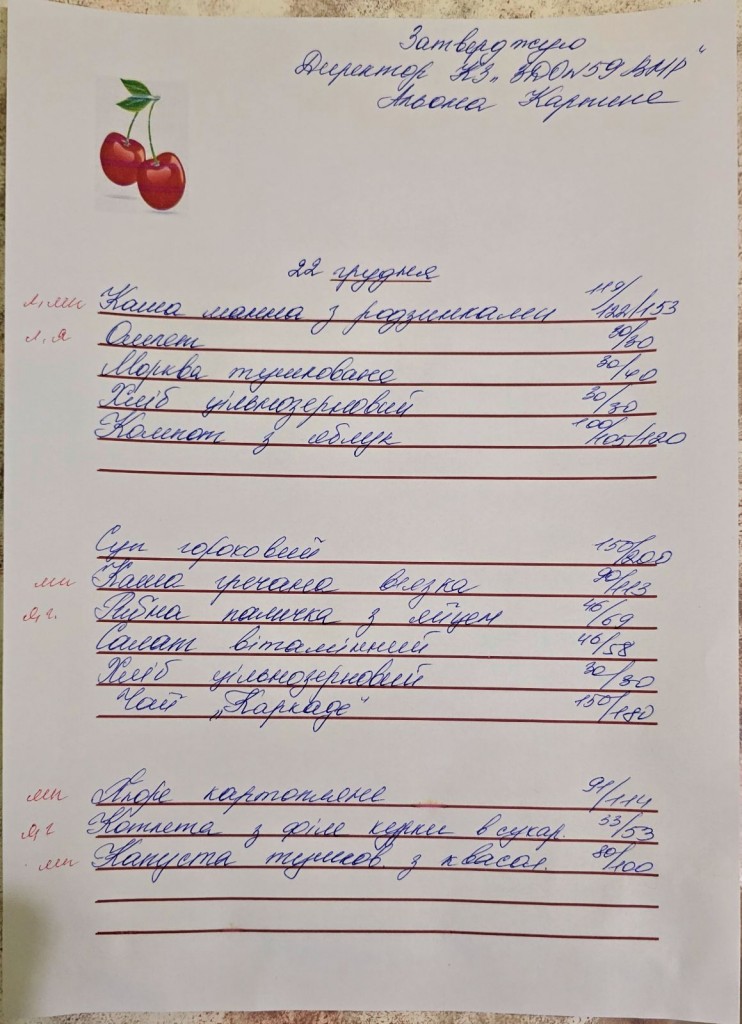 Затверджую
Директор КЗ „ЗДО №59 ВМР"
Альона Картине
22 грудня
л, мп Каша манна з родзинками 119/122/153
л, я Омлет 30/30
Морква тушкована 30/40
Хліб цільнозерновий 30/30
Компот з яблук 100/105/120
Суп гороховий 150/200
мп Каша гречана в'язка 90/113
я, г. Рибна паличка з яйцем 46/69
Салат вітамінний 46/58
Хліб цільнозерновий 30/30
Чай „Каркаде" 150/180
мп Пюре картопляне 91/114
я, г Котлета з філе курки в сухар. 53/53
мп Капуста тушков. з квасол. 80/100